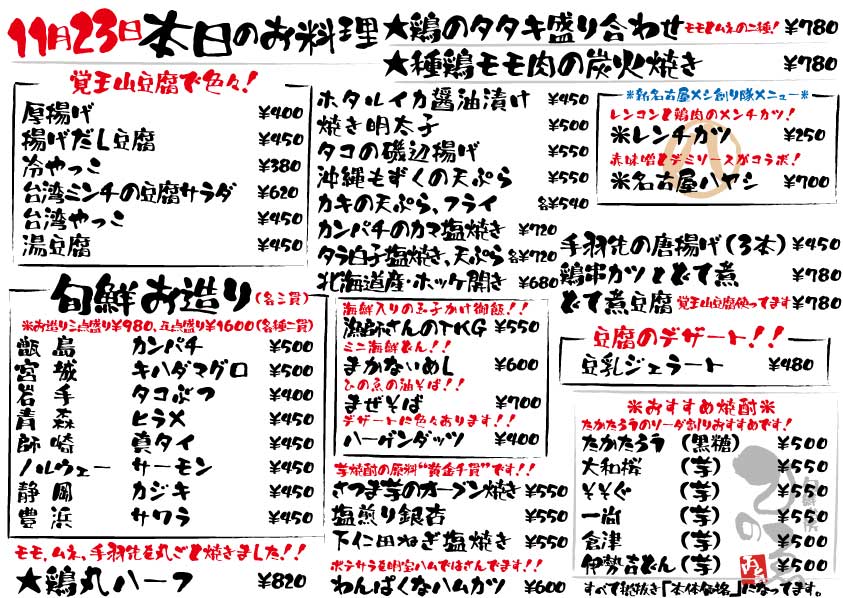 11月23日本日のお料理
★鶏のタタキ盛り合わせ モモとムネの二種! ¥780
★種鶏モモ肉の炭火焼き ¥780
覚王山豆腐で色々!
厚揚げ ¥400
揚げだし豆腐 ¥450
冷やっこ ¥380
台湾ミンチの豆腐サラダ ¥620
台湾やっこ ¥450
湯豆腐 ¥450
ホタルイカ醤油漬け ¥450
焼き明太子 ¥500
タコの磯辺揚げ ¥550
沖縄もずくの天ぷら ¥550
カキの天ぷら、フライ 各¥540
カンパチのカマ塩焼き ¥720
タラ白子塩焼き、天ぷら 各¥720
北海道産・ホッケ開き ¥680
※新名古屋メシ創り隊メニュー※
レンコンと鶏肉のメンチカツ!
※レンチカツ ¥250
赤味噌とデミソースがコラボ!
※名古屋ハヤシ ¥700
手羽先の唐揚げ(3本) ¥450
鶏串カツとどて煮 ¥780
どて煮豆腐 覚王山豆腐使ってます ¥780
旬鮮お造り(各三貫)
※お造り三点盛り¥980、五点盛り¥1600(各種二貫)
甑島 カンパチ ¥500
宮城 キハダマグロ ¥500
岩手 タコぶつ ¥400
青森 ヒラメ ¥450
師崎 真タイ ¥450
ノルウェー サーモン ¥450
静岡 カジキ ¥450
豊浜 サワラ ¥450
海鮮入りの玉子かけ御飯!!
漁師さんのTKG ¥550
ミニ海鮮どん!!
まかないめし ¥600
ひの魚の油そば!!
まぜそば ¥700
デザートに色々あります!!
ハーゲンダッツ ¥400
豆腐のデザート!!
豆乳ジェラート ¥480
※おすすめ焼酎※
たかたろうのソーダ割りおすすめです!
たかたろう (黒糖) ¥500
大和桜 (芋) ¥550
そそぐ (芋) ¥500
一尚 (芋) ¥500
倉津 (芋) ¥500
伊勢吉どん(芋) ¥500
すべて税抜き「本体価格」になってます。
芋焼酎の原料“黄金千貫”です!!
さつま芋のオーブン焼き ¥550
塩煎り銀杏 ¥550
下仁田ねぎ塩焼き ¥550
ポテサラを明宝ハムではさんでます!!
わんぱくなハムカツ ¥600
モモ、ムネ、手羽先を丸ごと焼きました!!
★鶏丸ハーフ ¥820